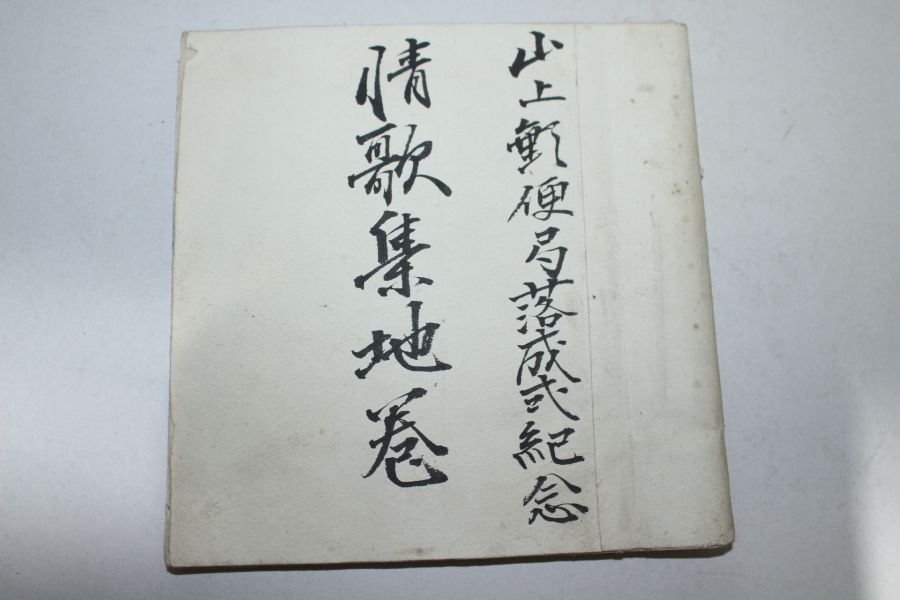 山上郵便局落成式紀念
情歌集地卷